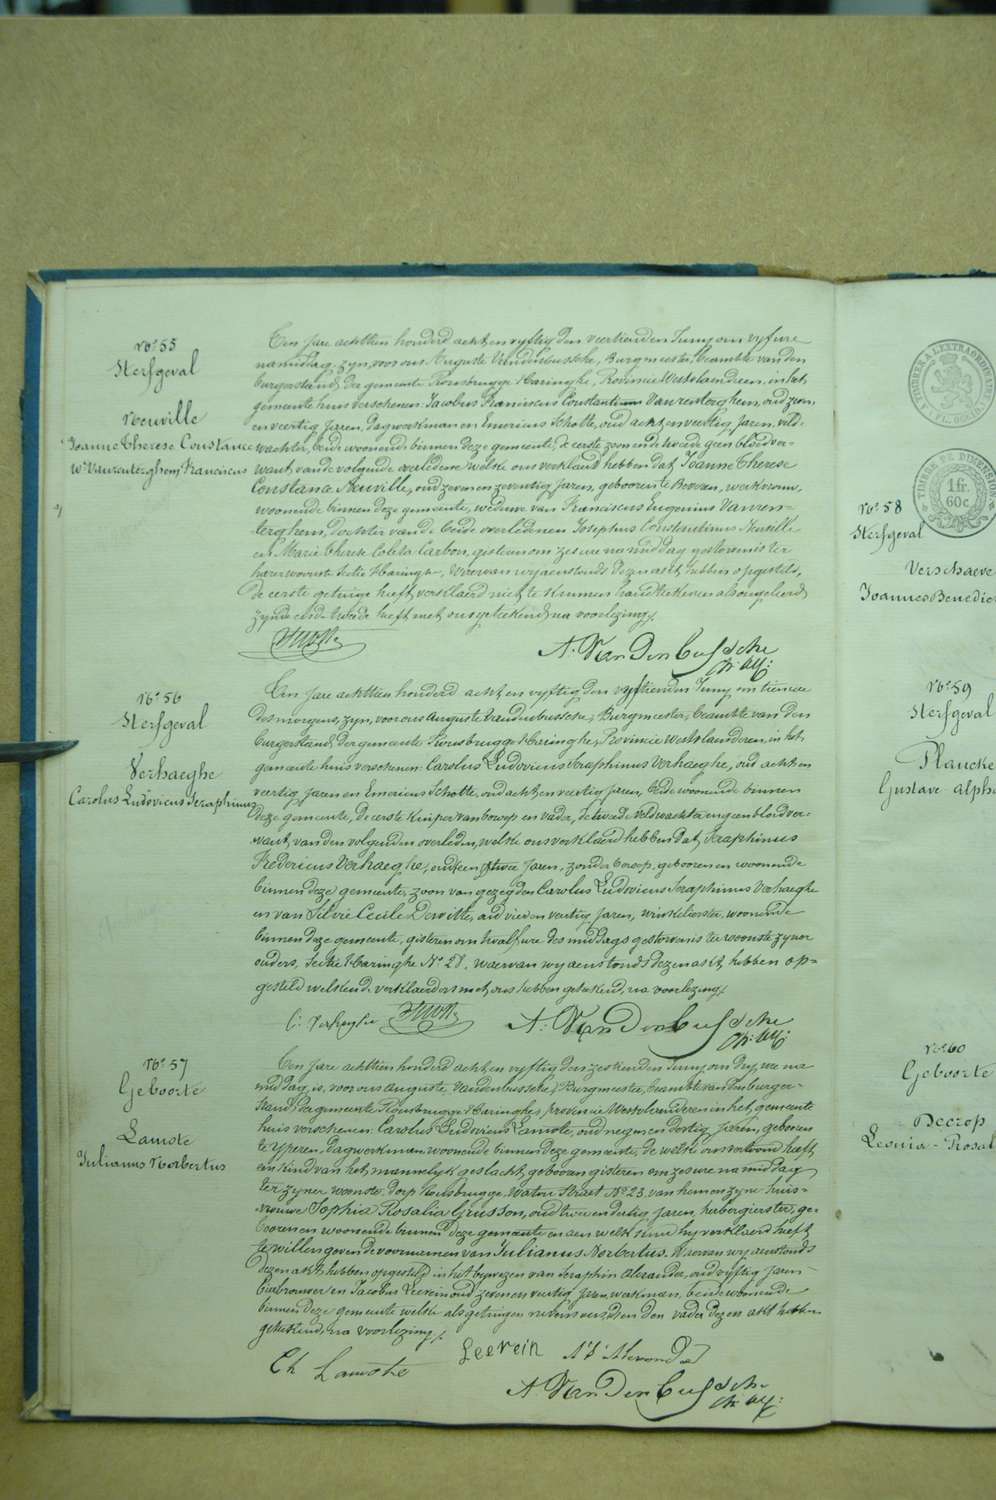 No. 55
Sterfgeval
Neuville
Joanna Therese Constance
We Vanrenterghem Franciscus
Een Jare achttien honderd acht en vyftig den veertienden Juny om vyf ure
namiddag, zyn, voor ons Auguste Vandenbussche, Burgmeester, beambte van den
burgerstand, der gemeente Rousbrugge-Haringhe, Provincie Westvlaanderen, in het
gemeente huis verschenen Jacobus Franciscus Constantinus Vanrenterghem, oud zeven
en veertig Jaren, dagwerkman en Emericus Schotte, oud acht en veertig Jaren, veld-
wachter, beide woonende binnen deze gemeente, de eerste zoon en de tweede geen bloedver-
want van de volgende overledene welke ons verklaard hebben dat Joanne Therese
Constance Neuville, oud zeven en zeventig Jaren, geboren te Beveren, werkvrouw,
woonende binnen deze gemeente, weduwe van Franciscus Eugenius Vanren-
terghem, dochter van de beide overledenen Josephus Constantinus Neuville
en Marie Therese Coleta Carbon, gisteren om zes ure namiddag gestorven is ter
harer woonste Sectie Haringhe, Waervan wy aenstonds dezen akt hebben opgesteld,
de eerste getuige heeft verklaerd niet te kunnen handteekenen als ongeleerd
zynde en de tweede heeft met ons geteekend, na voorlezing.
A. VanDenBussche
No. 56
Sterfgeval
Verhaeghe
Carolus Ludovicus Seraphinus
Een Jare achttien honderd acht en vyftig den vyftienden Juny om tien ure
des morgens, zyn, voor ons Auguste Vandenbussche, Burgmeester, beambte van den
burgerstand, der gemeente Rousbrugge-Haringhe, Provincie Westvlaanderen, in het
gemeente huis verschenen Carolus Ludovicus Seraphinus Verhaeghe, oud acht en
veertig Jaren en Emericus Schotte, oud acht en veertig Jaren, beide woonende binnen
deze gemeente, de eerste kuiper van beroep en vader, de tweede veldwachter en geen bloedver-
want, van den volgenden overleden, welke ons verklaerd hebben dat Seraphinus
Fredericus Verhaeghe, oud een twee Jaren, zonder beroep, geboren en woonende
binnen deze gemeente, zoon van gezegden Carolus Ludovicus Seraphinus Verhaeghe
en van Silvie Cecile Dewitte, oud vier en veertig Jaren, winkelierster, woonende
binnen deze gemeente, gisteren om twalf ure des middags gestorven is ter woonste zyner
ouders, Sectie Haringhe No. 28, waervan wy aenstonds dezen akt hebben op-
gesteld welke de verklaerders met ons hebben geteekend, na voorlezing.
C: Verhaeghe
A. VanDenBussche
No. 57
Geboorte
Lamote
Julianus Norbertus
Een Jare achttien honderd acht en vyftig den zestienden Juny om dry ure na
middag, is, voor ons Auguste Vandenbussche, Burgmeester, beambte van den burger-
stand, der gemeente Rousbrugge-Haringhe, provincie Westvlaanderen in het gemeente
huis verschenen Carolus Ludovicus Lamote, oud negen en dertig Jaren, geboren
te Yperen, dagwerkman, woonende binnen deze gemeente, de welke ons vertoond heeft
een kind van het mannelyk geslacht, geboren gisteren om zes ure namiddag
ter zyner woonste, dorp Rousbrugge, Watou Straet No. 23, van hem en zyne huis-
vrouwe Sophia Rosalia Grusson, oud twee en dertig Jaren, herbergierster, ge-
boren en woonende binnen deze gemeente en aen welk kind hy verklaerd heeft
te willen geven de voornamen van Julianus Norbertus. Waervan wy aenstonds
dezen akt hebben opgesteld in het bywezen van Seraphin Alexander, oud vyftig Jaren
bierbrouwer en Jacobus Leerein oud zeven en veertig Jaren, werkman, beide woonende
binnen deze gemeente welke als getuigen nevens ons en den vader dezen akt hebben
geteekend, na voorlezing.
Ch Lamote
Leerein
A. VanDenBussche
A TIMBRER A L'EXTRAORDINAIRE
TIMBRE DE DIMENSION
1 fr.
60 c.
No. 58
Sterfgeval
Verschaeve
Joannes Benedic
No. 59
Sterfgeval
Plancke
Gustave Alpho
No. 60
Geboorte
Decrop
Leonia-Rosal